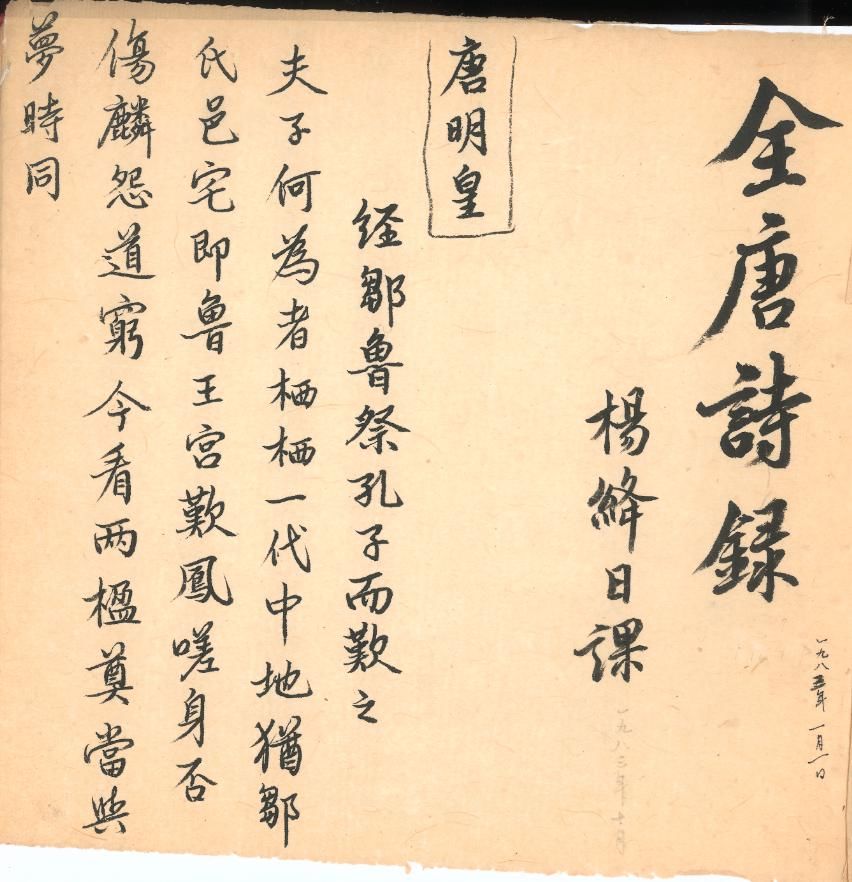 一九八五年一月一日
全唐詩録
楊絳日課
一九八三年十月
唐明皇
経鄒魯祭孔子而歎之
夫子何為者栖栖一代中地猶鄒
氏邑宅即魯王宮歎鳳嗟身否
傷麟怨道窮今看两楹奠當與
夢時同